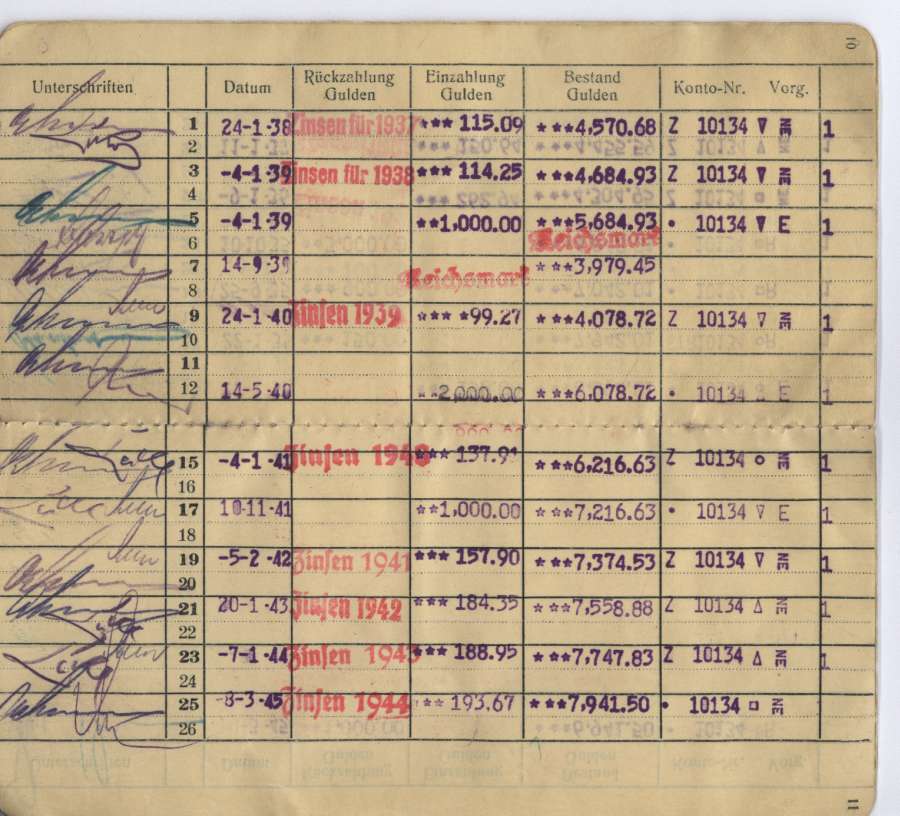 10
Unterschriften Datum Rückzahlung Gulden Einzahlung Gulden Bestand Gulden Konto-Nr. Vorg.
1 24-1-38 Zinsen für 1937 *** 115.09 ***4,570.68 Z 10134 ∇ NE 1
2
3 -4-1-39 Zinsen für 1938 *** 114.25 ***4,684.93 Z 10134 ∇ NE 1
4
5 -4-1-39 **1,000.00 ***5,684.93 • 10134 ∇ E 1
6 Reichsmark
7 14-9-39 ***3,979.45
8 Reichsmark
9 24-1-40 Zinsen 1939 *** *99.27 ***4,078.72 Z 10134 ∇ NE 1
10
11
12 14-5-40 **2,000.00 ***6,078.72 • 10134 E 1
15 -4-1-41 Zinsen 1940 *** 137.91 ***6,216.63 Z 10134 o NE 1
16
17 10-11-41 **1,000.00 ***7,216.63 • 10134 ∇ E 1
18
19 -5-2-42 Zinsen 1941 *** 157.90 ***7,374.53 Z 10134 ∇ NE 1
20
21 20-1-43 Zinsen 1942 *** 184.35 ***7,558.88 Z 10134 Δ NE 1
22
23 -7-1-44 Zinsen 1943 *** 188.95 ***7,747.83 Z 10134 Δ NE 1
24
25 -8-3-45 Zinsen 1944 *** 193.67 ***7,941.50 • 10134 □ NE
26
11